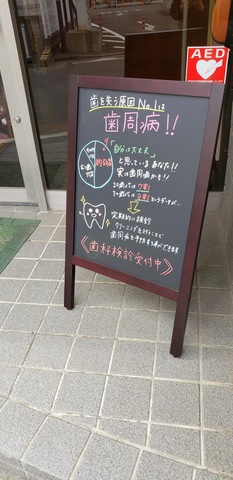 AED
歯を失う原因No.1は
歯周病!!
「自分は大丈夫」
と思っているあなた!!
実は歯周病かも!!
20歳では7割
30歳では8割
定期的に検診
クリーニングを行うことで
歯周病を予防することができます
《歯科検診受付中》